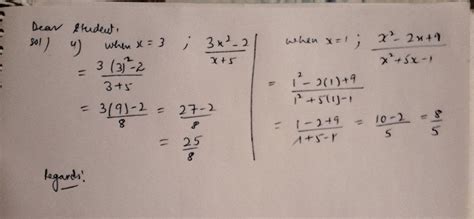 Dear Student,
Sol) 4) when x = 3 ; (3x² - 2)/(x + 5)
= (3(3)² - 2)/(3 + 5)
= (3(9) - 2)/8 = (27 - 2)/8
= 25/8
when x = 1 ; (x² - 2x + 9)/(x² + 5x - 1)
= (1² - 2(1) + 9)/(1² + 5(1) - 1)
= (1 - 2 + 9)/(1 + 5 - 1) = (10 - 2)/5 = 8/5
Regards!